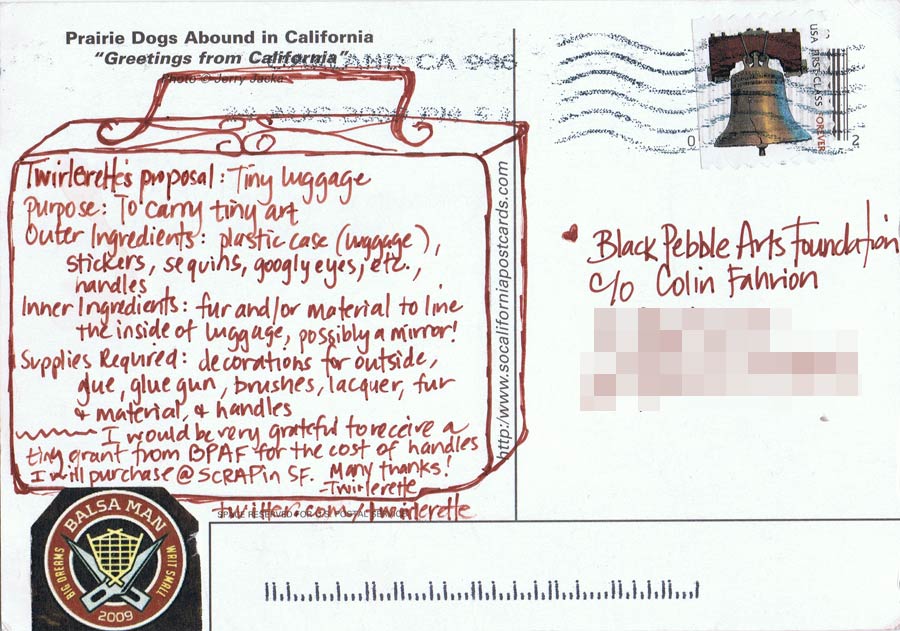 Prairie Dogs Abound in California
"Greetings from California"
Photo © Jerry Jacka
AND CA 946
Twirlerette's proposal: Tiny luggage
Purpose: To carry tiny art
Outer Ingredients: plastic case (luggage),
stickers, sequins, googly eyes, etc.,
handles
Inner Ingredients: fur and/or material to line
the inside of luggage, possibly a mirror!
Supplies Required: decorations for outside,
glue, glue gun, brushes, lacquer, fur
& material, & handles
I would be very grateful to receive a
tiny grant from BPAF for the cost of handles
I will purchase @ SCRAP in SF. Many thanks!
-Twirlerette
twitter.com/twirlerette
SPACE RESERVED FOR U.S. POSTAL SERVICE
http:/www.socaliforniapostcards.com
USA FIRST-CLASS FOREVER
Black Pebble Arts Foundation
c/o Colin Fahrion
BALSA MAN
BIG DREAMS
WRIT SMALL
2009